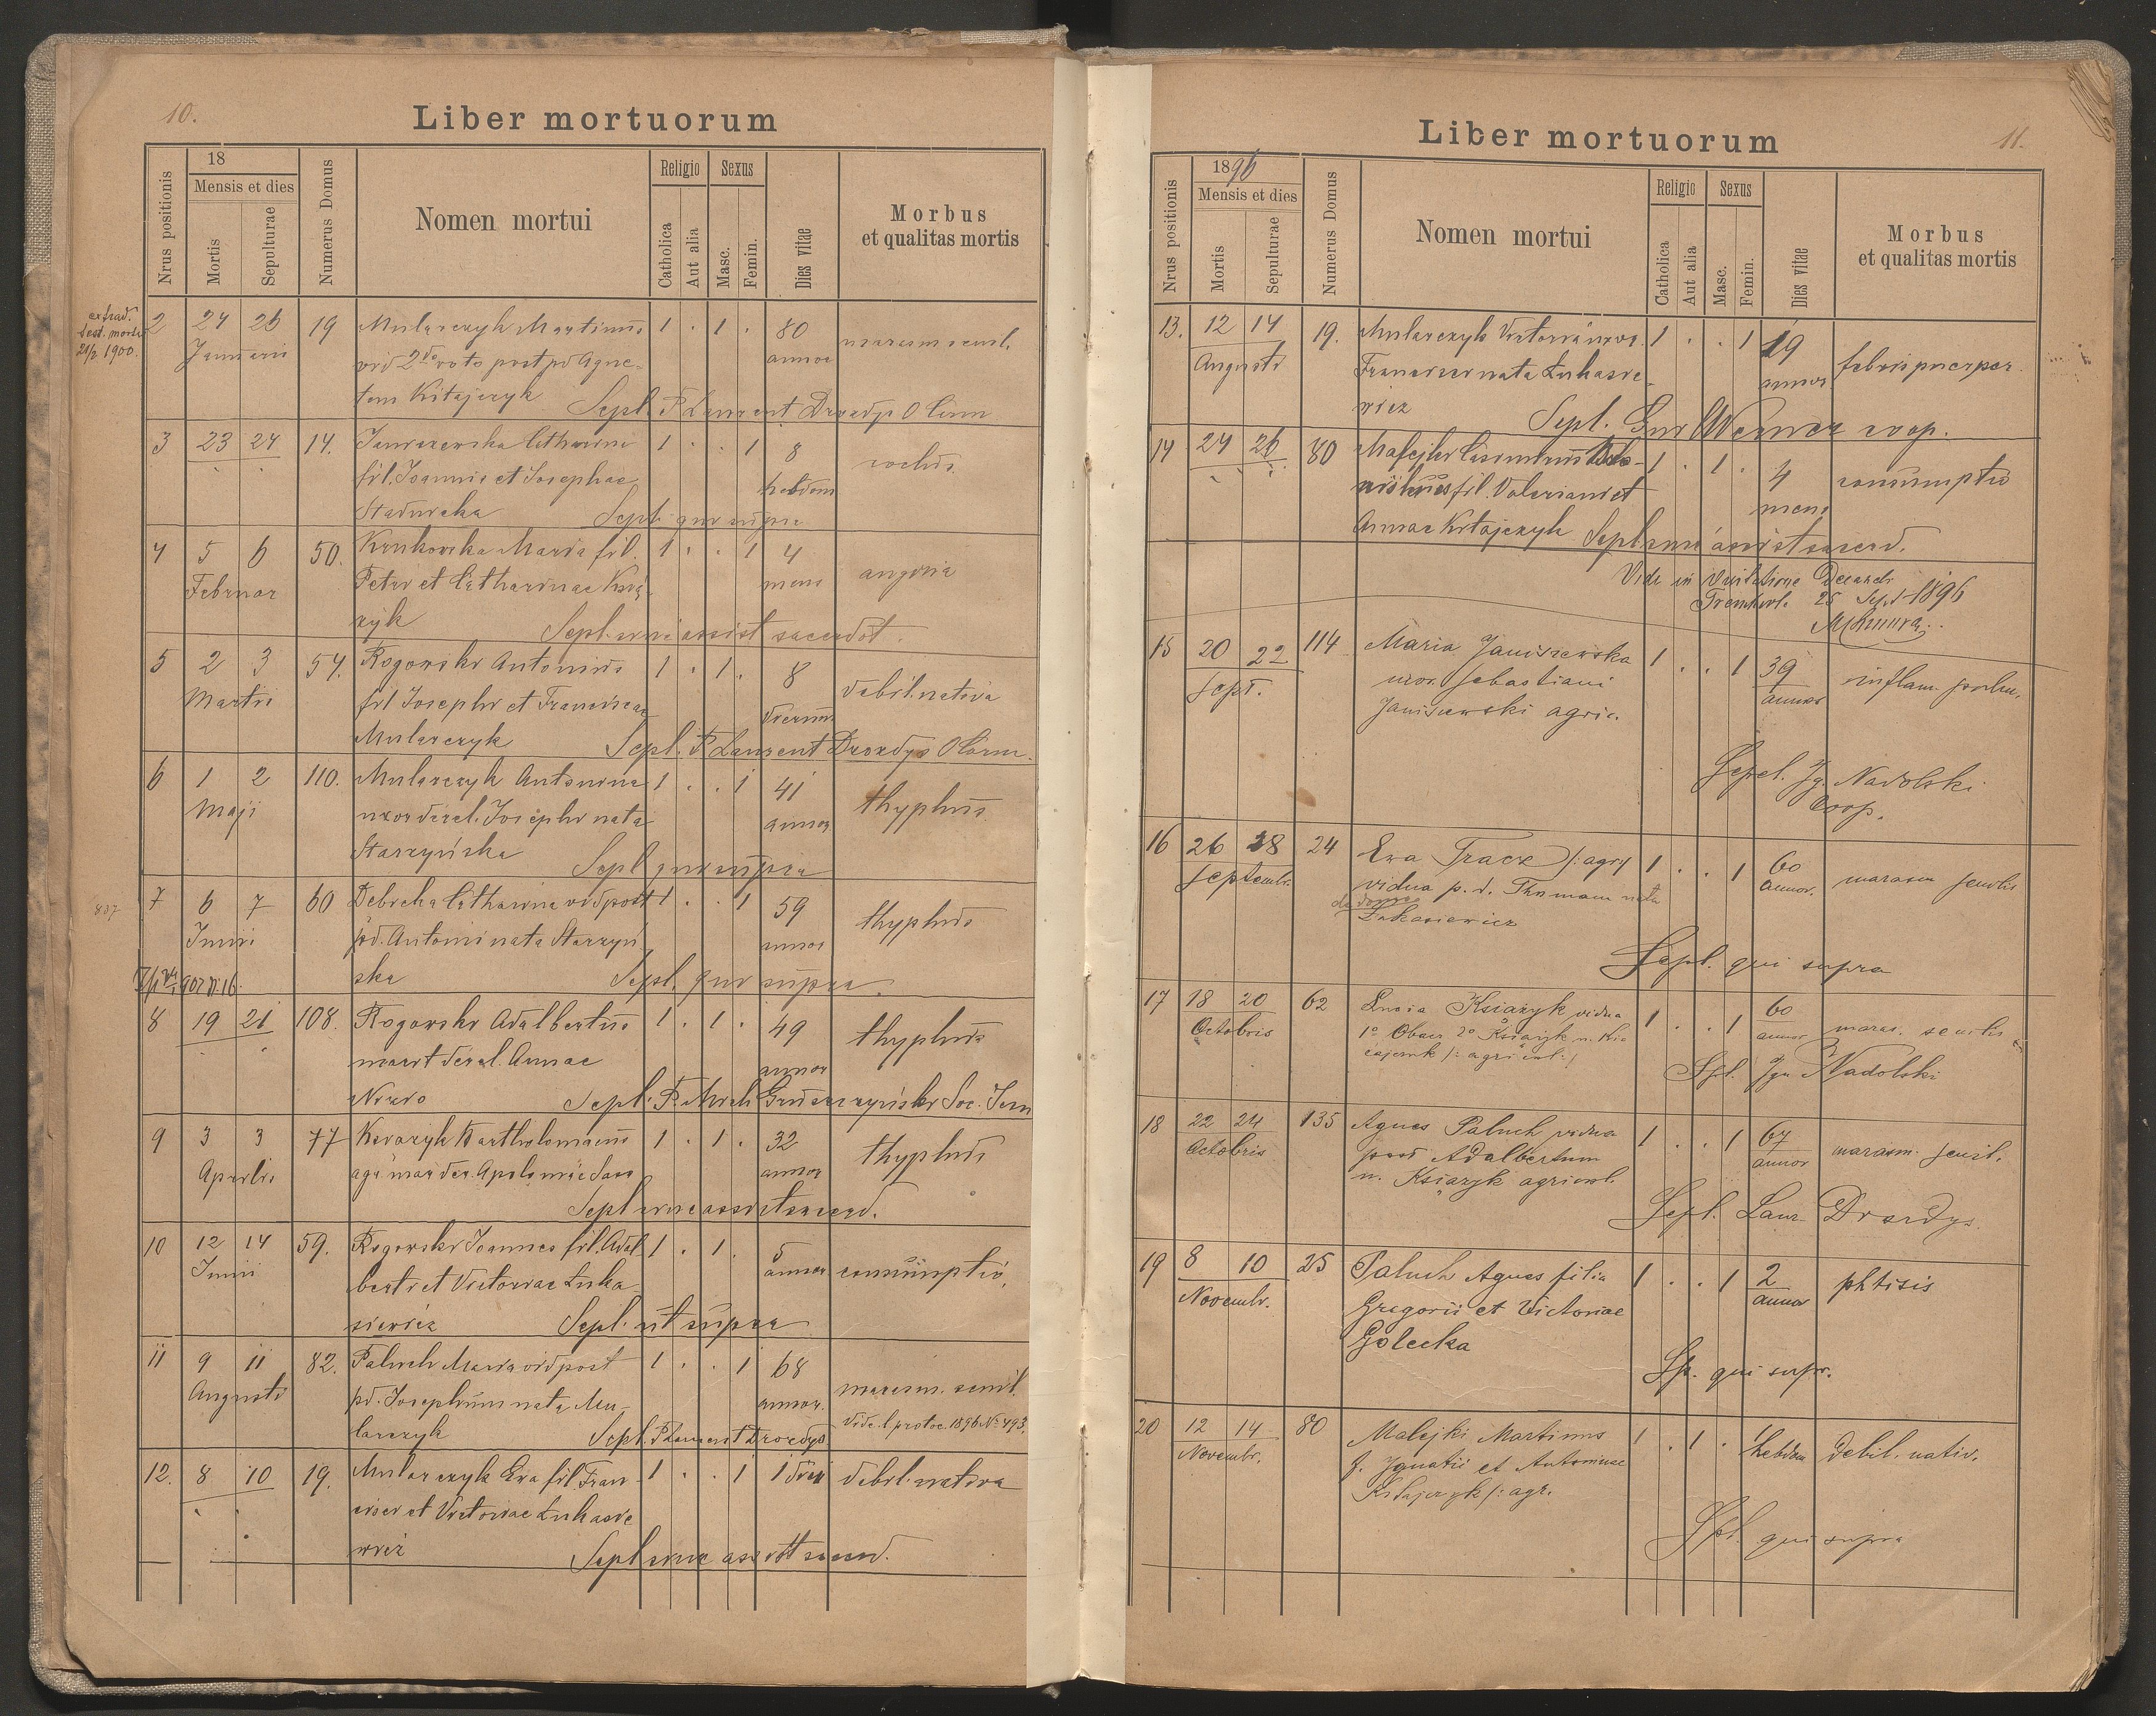 10.
Liber mortuorum
Nrus positionis
18
Mensis et dies
Mortis
Sepulturae
Numerus Domus
Nomen mortui
Religio
Catholica
Aut alia
Sexus
Masc.
Femin.
Dies vitae
Morbus
et qualitas mortis
extrad.
test. mortis
21/2 1900.
2 24 26 19 Mularczyk Martinus 1 . 1 . 80
Januarii vid 2do voto post pd Agne- annor marasm senil.
tem Kitajczyk Sepl. P Laurent Drozdys O Carm
3 23 24 14. Janiszewska Catharina 1 . . 1 8
fil. Joannis et Josephae hebdom
Stadnicka Sepl. qui supra
4 5 6 50. Krukowska Maria fil. 1 . . 1 4
Februar Petri et Catharinae Ksią- mens angina
zyk Sepl. unus assist sacerdot.
5 2 3 54. Rogowski Antonius 1 . 1 . 8
Martii fil Josephi et Franciscae dierum debil. nativa
Mularczyk Sepl. P Laurent Drozdys O Carm.
6 1 2 110. Mularczyk Antonina 1 . . 1 41
Maji uxor derel. Josephi nata annor thyphus
Starzyńska Sepl qui supra
807
7 6 7 60 Debicka Catharina vid post 1 . . 1 59
Junii pd. Antonii nata Starzyń annor thyphus
ska Sepl. qui supra.
8 19 21 108. Rogowski Adalbertus 1 . 1 . 49
marit derel. Annae annor thyphus
Sepl. P. Mich Soc. Jesu
9 3 3 77 Ksiazyk Bartholomaeus 1 . 1 . 32
Aprilis annor thyphus
10 12 14 59. Rogowski Joannes fil. Adal 1 . 1 . 5
Junii berti et Victoriae Łuka annor consumptio
siewicz Sepl. ut supra
11 9 11 82. Paluch Maria vid post 1 . . 1 68
Augusti pd. Josephum nata Mu- annor. marasm. senil.
larczyk Sepl. P Laurent Drozdys Vide l. protoc. 1896 No 493.
12. 8 10 19. Mularczyk Eva fil Fran 1 . . 1 1 diei debil. nativa
cisci et Victoriae Łukasie
wicz
Liber mortuorum
11.
Nrus positionis
1896
Mensis et dies
Mortis
Sepulturae
Numerus Domus
Nomen mortui
Religio
Catholica
Aut alia
Sexus
Masc.
Femin.
Dies vitae
Morbus
et qualitas mortis
13. 12 14 19. Mularczyk Victoria uxor 1 . . 1 19
Augusti Francisci nata Łukasie- annor febris puerper.
wicz Sepl. coop.
14 24 26 80 Malejki Casimirus 1 . 1 . 4
fil. Valeriani et mens consumptio
Annae Kitajczyk
Vidi in Visitatione Decanali
25 Sept 1896
15 20 22 114 Maria Janiszewska 1 . . 1 39
Sept. uxor Sebastiani annor inflam. pulm.
Janiszewski agric.
Sepel. Ig. Nadolski
Coop.
16 26 28 24 Ewa Tracz /: agr 1 . . 1 60
Septembr. vidua p. d. Thomam nata annor. marasm senilis
Łukasiewicz
Sepl. qui supra
17 18 20 62 Lucia Książyk vidua 1 . . 1 60
Octobris 1o 2o Książyk n. Ki annor maras. senilis
tajczuk /: agricol :/
Spl. Ign Nadolski
18 22 24 135 Agnes Paluch vidua 1 . . 1 67
Octobris post Adalbertum annor marasm. senil.
n. Książyk agricol.
Sepl. Laur Drozdys
19 8 10 25 Paluch Agnes filia 1 . . 1 2
Novembr. Gregorii et Victoriae annor phtisis
Golecka
Sp. qui supr.
20 12 14 80 Malejki Martinus 1 . 1 . 1 hebdom debil. nativ.
Novembr. f. Ignatii et Antoninae
Kitajczyk /: agr.
Spl. qui supra